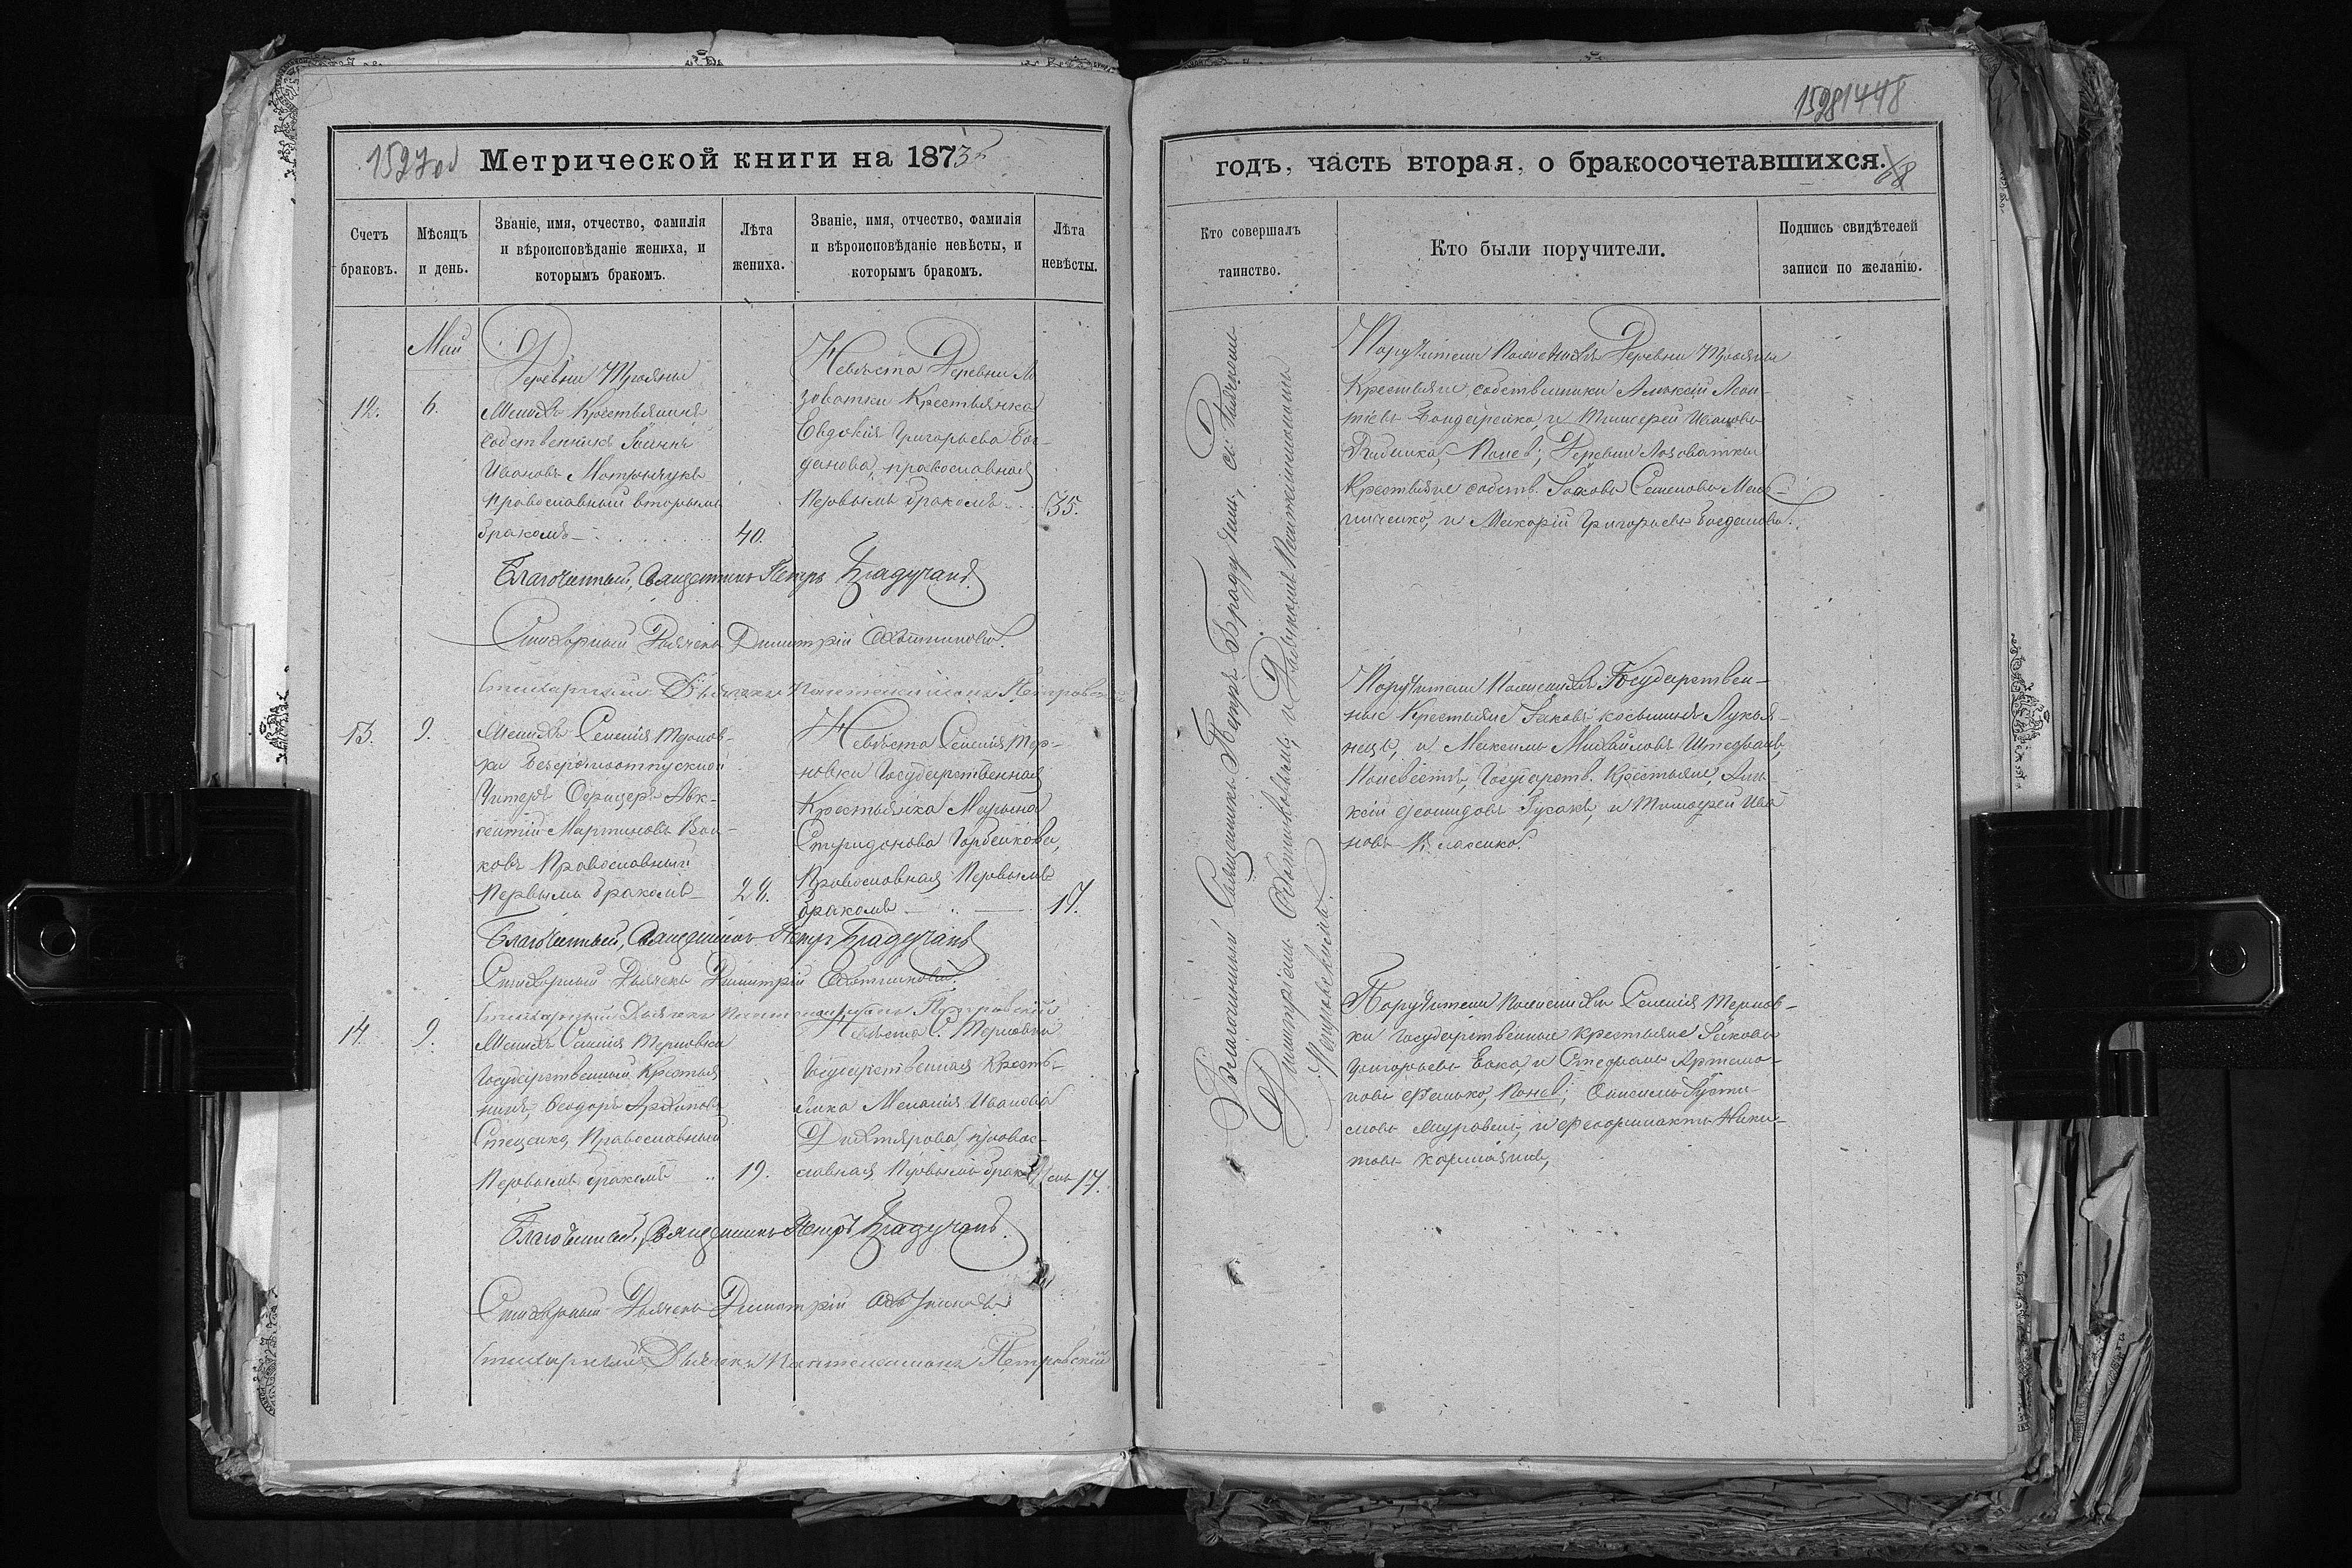 1527 об
Метрической книги на 1873
Счетъ браковъ.
Мѣсяцъ и день.
Званіе, имя, отчество, фамилія
и вѣроисповѣданіе жениха, и
которымъ бракомъ.
Лѣта
жениха.
Званіе, имя, отчество, фамилія
и вѣроисповѣданіе невѣсты, и
которымъ бракомъ.
Лѣта
невѣсты.
Май
12.
6.
Деревни Трояны
Женихъ Крестьянинъ
собственникъ Іоаннъ
Ивановъ Мотрынчукъ
православный вторымъ
бракомъ
40.
Невѣста Деревни Ло
зоватки Крестьянка
Евдокія Григорьева Бог-
данова, православная
первымъ бракомъ
35.
Благочинный, Священникъ Петръ Брадучанъ.
Стихарный Дьячекъ Димитрій Охотниковъ.
Стихарный Дьячекъ Пантелеимонъ Петровскій
13.
9.
Женихъ Селенія Тернов-
ки безсрочноотпускной
Унтеръ Офицеръ Авк-
сентій Мартиновъ Вол-
ковъ Православный
Первымъ бракомъ
28.
Невѣста Селенія Тер-
новки Государственная
Крестьянка Марина
Спиридонова Горбенкова,
Православная Первымъ
бракомъ
17.
Благочинный, Священникъ Петръ Брадучанъ
Стихарный Дьячекъ Димитрій Охотниковъ.
Стихарный Дьячекъ Пантелеимонъ Петровскій
14.
9.
Женихъ Селенія Терновки
Государственный Крестья
нинъ, Феодоръ Архиповъ
Стеценко, Православный
Первымъ бракомъ
19.
Невѣста С. Терновки
Государственная Кресть-
янка Меланія Иванова
Дихтярова, правос-
лавная Первымъ бракомъ
17.
Благочинный, Священникъ Петръ Брадучанъ.
Стихарный Дьячекъ Димитрій Охотниковъ
Стихарный Дьячекъ Пантелеимонъ Петровскій
1528 1448
годъ, часть вторая, о бракосочетавшихся.
68
Кто совершалъ
таинство.
Кто были поручители.
Подпись свидѣтелей
записи по желанію.
Благочинный Священникъ Петръ Брадучанъ, съ Дьячкомъ
Димитріемъ Охотниковымъ, и Дьячкомъ Пантелеимономъ
Петровскимъ.
Поручители По женихѣ Деревни Трояны
Крестьяне собственники Алексѣй Леон-
тіевъ Бондаренко, и Тимофей Ивановъ
Дидикъ, По нев; Деревни Лозоватки
Крестьяне собств. Іаковъ Семеновъ Мель-
ниченко, и Макарій Григорьевъ Богдановъ.
Поручители По женихѣ Государствен-
ные Крестьяне Іаковъ Косьминъ Лукья-
нецъ, и Максимъ Михайловъ Штефанъ,
По невѣстѣ, Государств. Крестьяне, Але-
ксѣй Гусакъ, и Тимофей Ива
новъ Власенко.
Поручители По женихѣ Селенія Тернов-
ки Государственные крестьяне Іаковъ
Григорьевъ и Стефанъ Артемо-
новъ По нев;